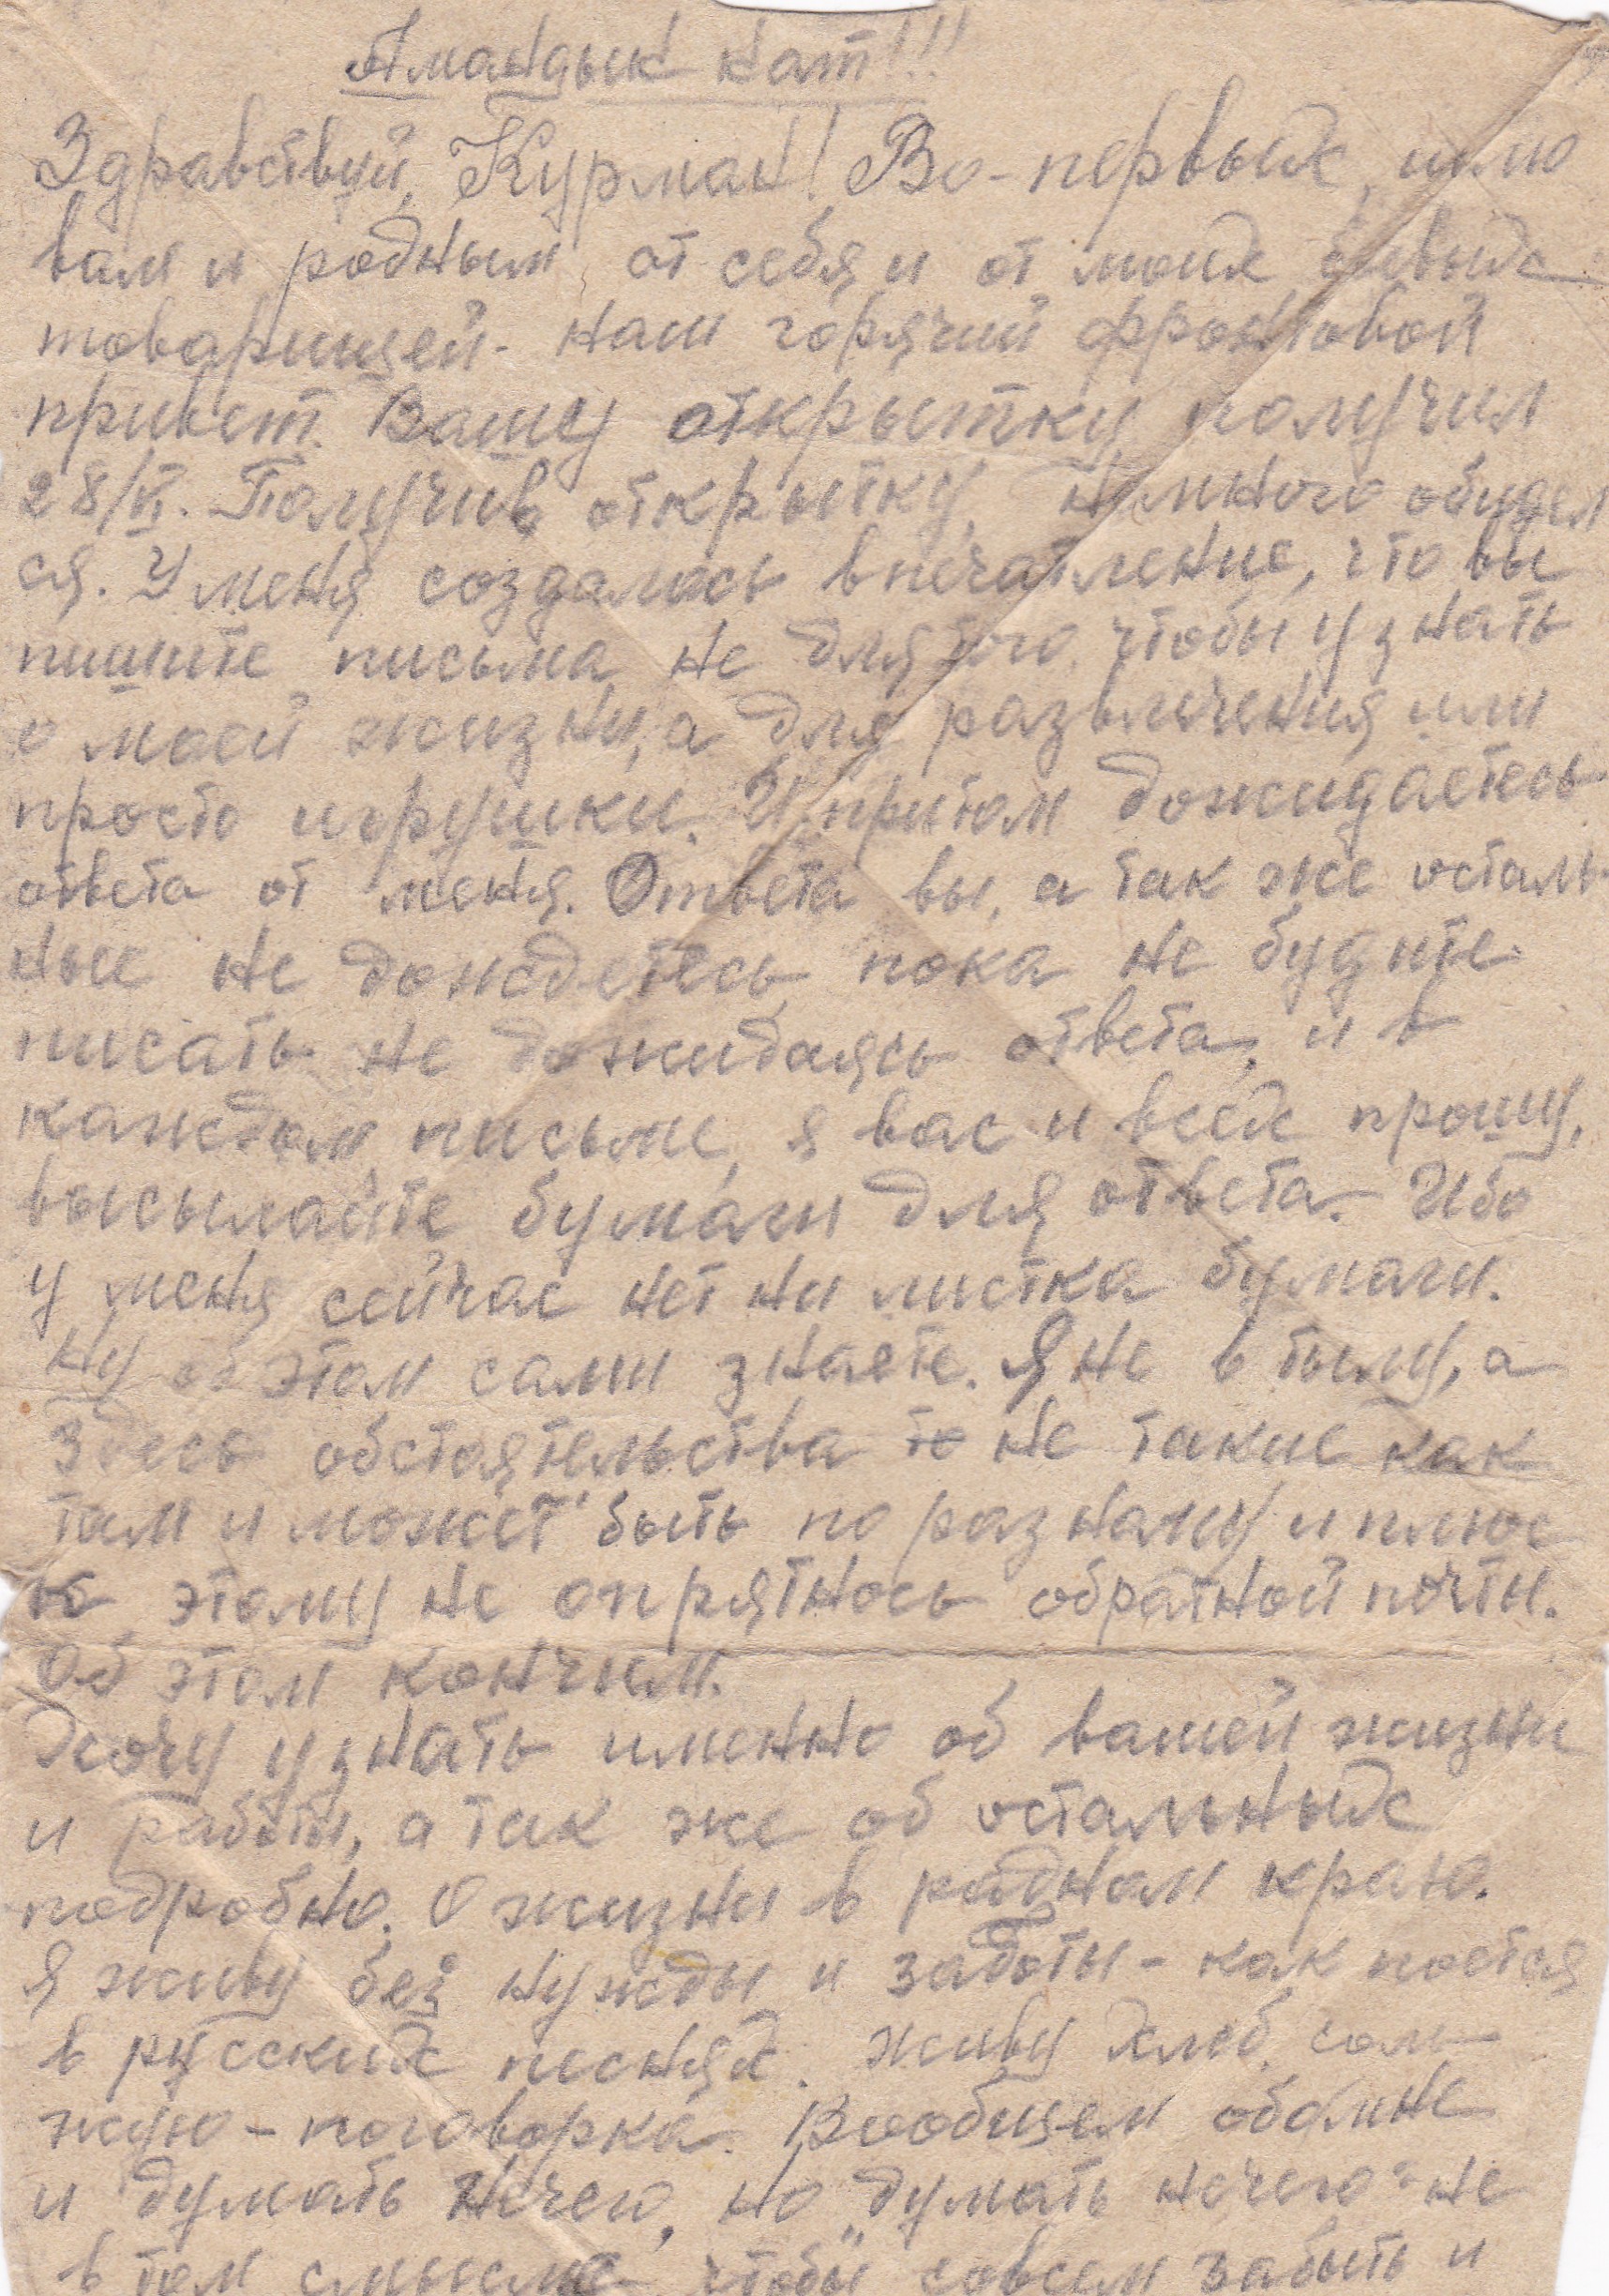 Амандык хат!!!
Здравствуй, Курман! Во-первых, шлю
вам и родным от себя и от моих
товарищей - наш горячий фронтовой
привет. Вашу открытку получил
28/VI. Получив открытку, немного обидел
ся. У меня создалось впечатление, что вы
пишите письма не для того, чтобы узнать
о моей жизни, а для развлечения или
просто игрушки. И притом дожидаетесь
ответа от меня. Ответа вы, а так же осталь
ные не дождетесь, пока не будите
писать не дожидаясь ответа, и в
каждом письме, я вас и всех прошу,
высылайте бумаги для ответа. Ибо
у меня сейчас нет ни листка бумаги.
Ну об этом сами знаете. Я не в тылу, а
здесь обстоятельства то не такие как
там и может быть по разному и плюс
к этому не опрятность обратной почты.
Об этом кончим.
Хочу узнать именно об вашей жизни
и работы, а так же об остальных
подробно. О жизни в родном краю.
Я живу без нужды и заботы - как поется
в русских песнях. Живу хлеб, соль
жую - поговорка. Вообщем обо мне
и думать нечего, но "думать нечего" не
в том смысле чтобы совсем забыть и